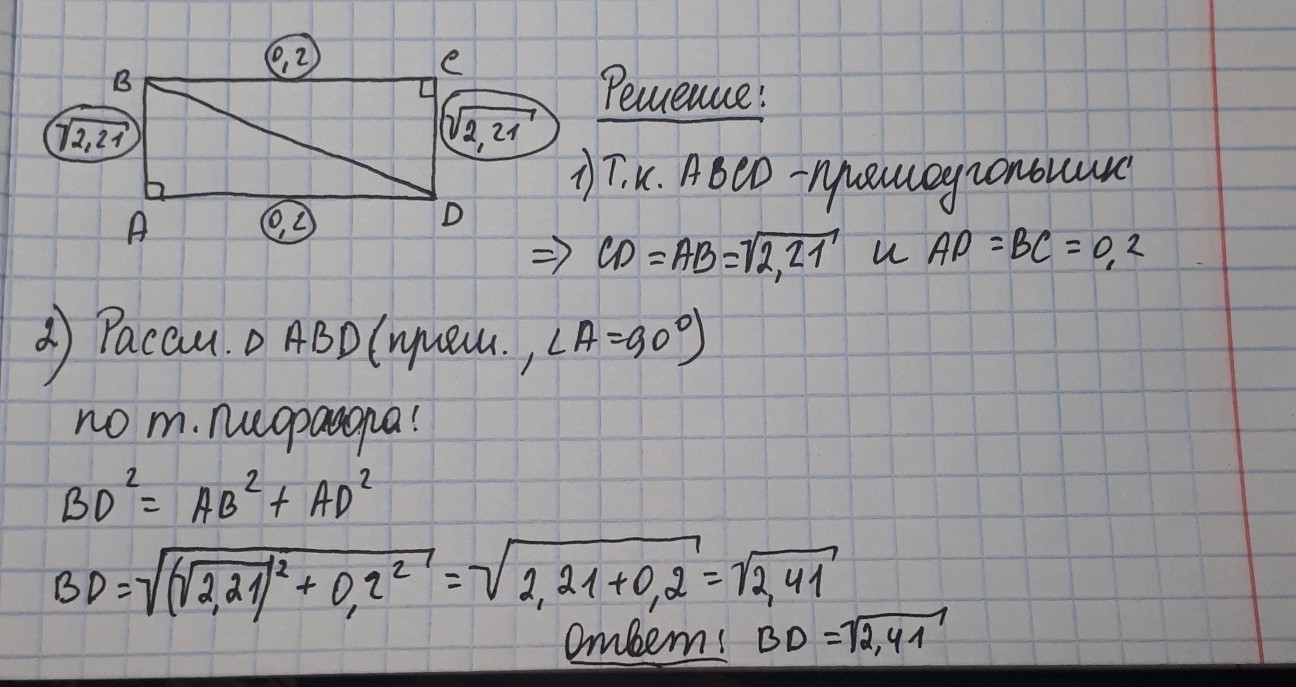 0,2
B
C
√2,21
√2,21
A
0,2
D
Решение:
1) Т.к. ABCD - прямоугольник
=> CD = AB = √2,21 и AD = BC = 0,2
2) Рассм. △ ABD (прям., ∠A = 90°)
по т. Пифагора:
BD² = AB² + AD²
BD = √((√2,21)² + 0,2²) = √(2,21 + 0,2) = √2,41
Ответ: BD = √2,41